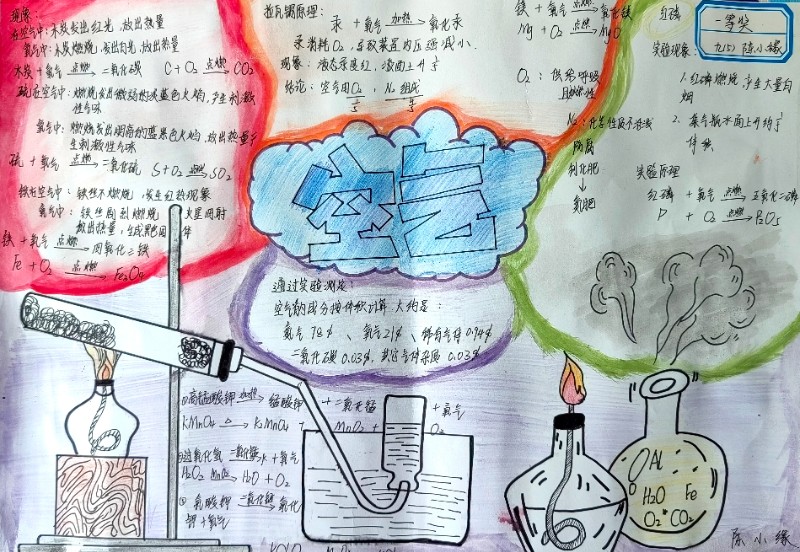 现象:
在空气中:木炭发出红光,放出热量
氧气中:木炭燃烧,发出白光,放出热量
木炭 + 氧气 点燃 二氧化碳 C + O2 点燃 CO2
硫在空气中:燃烧发出微弱的淡蓝色火焰,产生刺激
性气味
氧气中:燃烧发出明亮的蓝紫色火焰,放出热量,
生刺激性气体
硫 + 氧气 点燃 二氧化硫 S + O2 点燃 SO2
铁在空气中:铁丝不燃烧,发生红热现象
氧气中:铁丝剧烈燃烧 火星四射
放出热量,生成黑色固体
铁 + 氧气 点燃 四氧化三铁
Fe + O2 点燃 Fe3O4
拉瓦锡原理:
汞 + 氧气 加热 氧化汞
汞消耗O2,导致装置内压强减小.
现象:液态汞变红,液面上升1/5
结论:空气由O2 1/5 N2 组成 4/5
镁 + 氧气 点燃 氧化镁
Mg + O2 点燃 MgO
O2:供给呼吸
N2:化学性质不活泼
制化肥
↓
氮肥
红磷
一等奖
陈小缘
实验现象:
1.红磷燃烧,产生大量白
烟
2.集气瓶水面上升约1/5
体积
实验原理
红磷 + 氧气 点燃 五氧化二磷
P + O2 点燃 P2O5
空气
通过实验测定:
空气的成分按体积计算,大约是:
氮气78%、氧气21%、稀有气体0.94%
二氧化碳0.03%,其它气体杂质0.03%
①高锰酸钾 加热 锰酸钾 + 二氧化锰 + 氧气
KMnO4 △ K2MnO4 + MnO2 + O2
②过氧化氢 二氧化锰 水 + 氧气
H2O2 MnO2 H2O + O2
③氯酸钾 二氧化锰 氯化
钾 + 氧气
Al
H2O Fe
O2 CO2
陈小缘